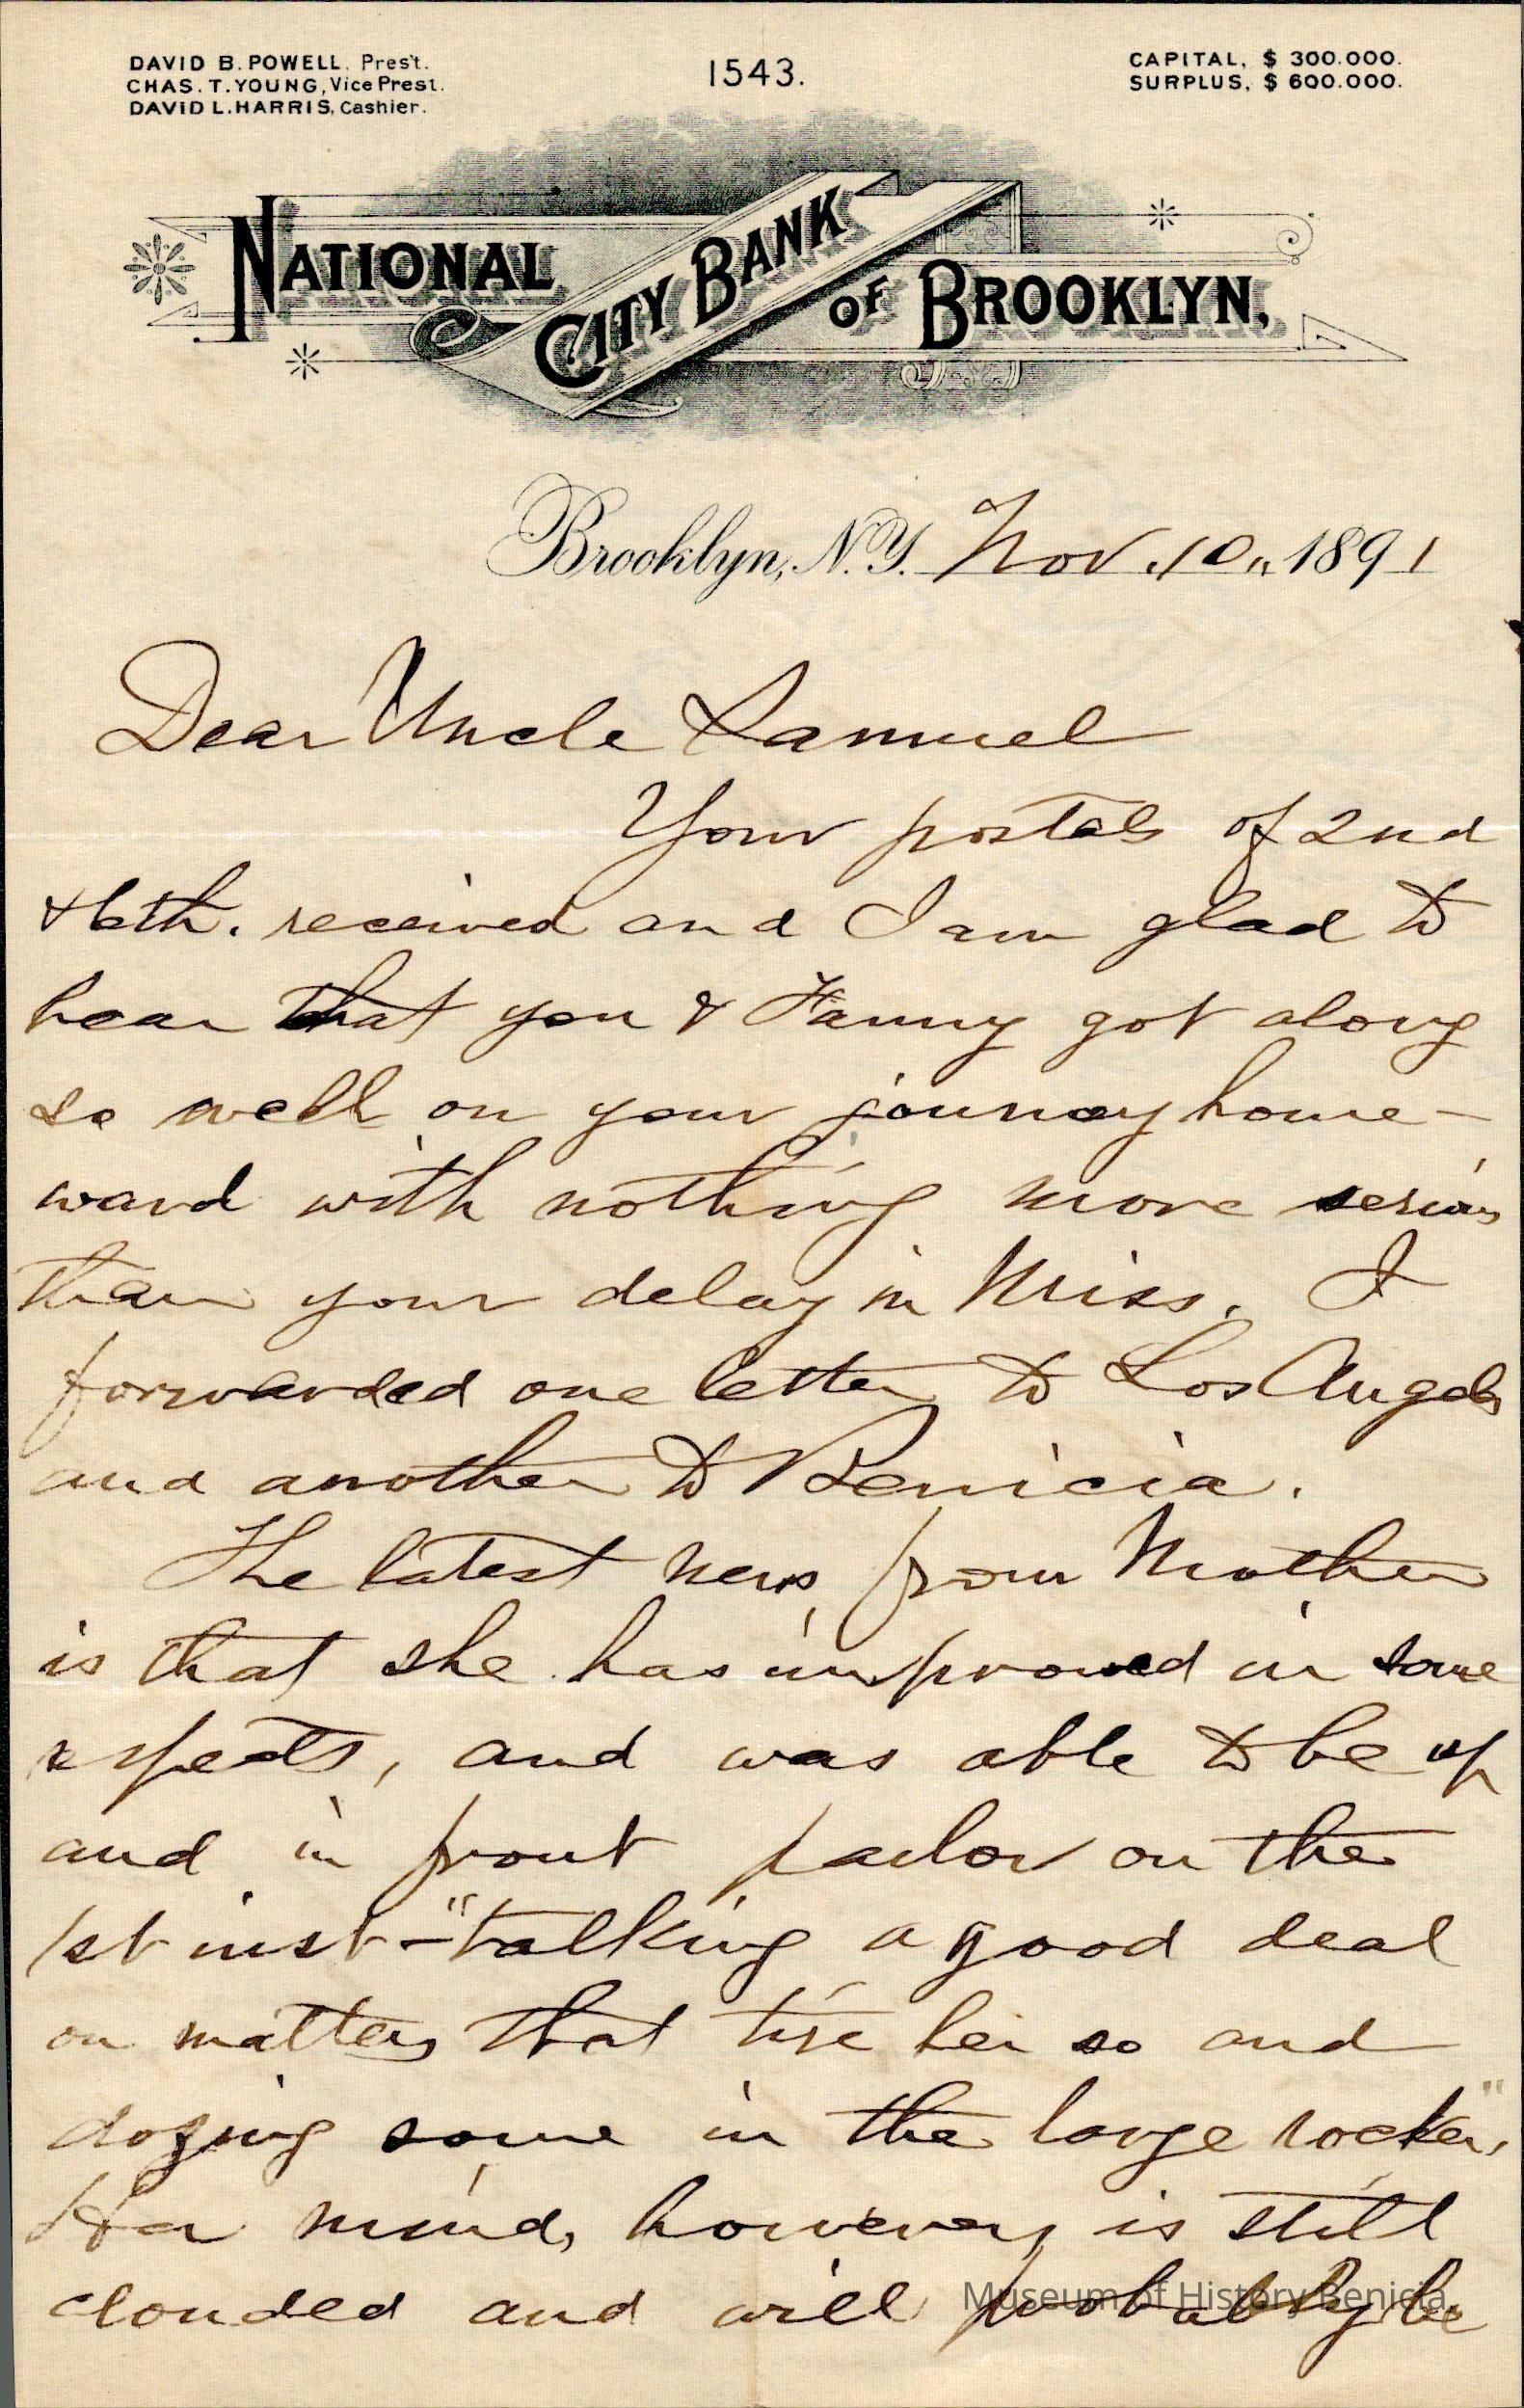 DAVID B. POWELL, Pres't.
CHAS. T. YOUNG, Vice Prest.
DAVID L. HARRIS, Cashier.
1543.
CAPITAL, $ 300.000.
SURPLUS, $ 600.000.
NATIONAL CITY BANK OF BROOKLYN,
Brooklyn, N.Y. Nov. 10" 1891
Dear Uncle Samuel
Your postals of 2nd
& 6th. received and I am glad to
hear that you & Fanny got along
so well on your journey home-
ward with nothing more serious
than your delay in Miss. I
forwarded one letter to Los Angeles
and another to Benicia.
The latest news from Mother
is that she has improved in some
respects, and was able to be up
and in front parlor on the
1st inst - "talking a good deal
on matters that tire her so and
dozing some in the large rocker"
Her mind, however, is still
clouded and will probably be
Museum of History Benicia